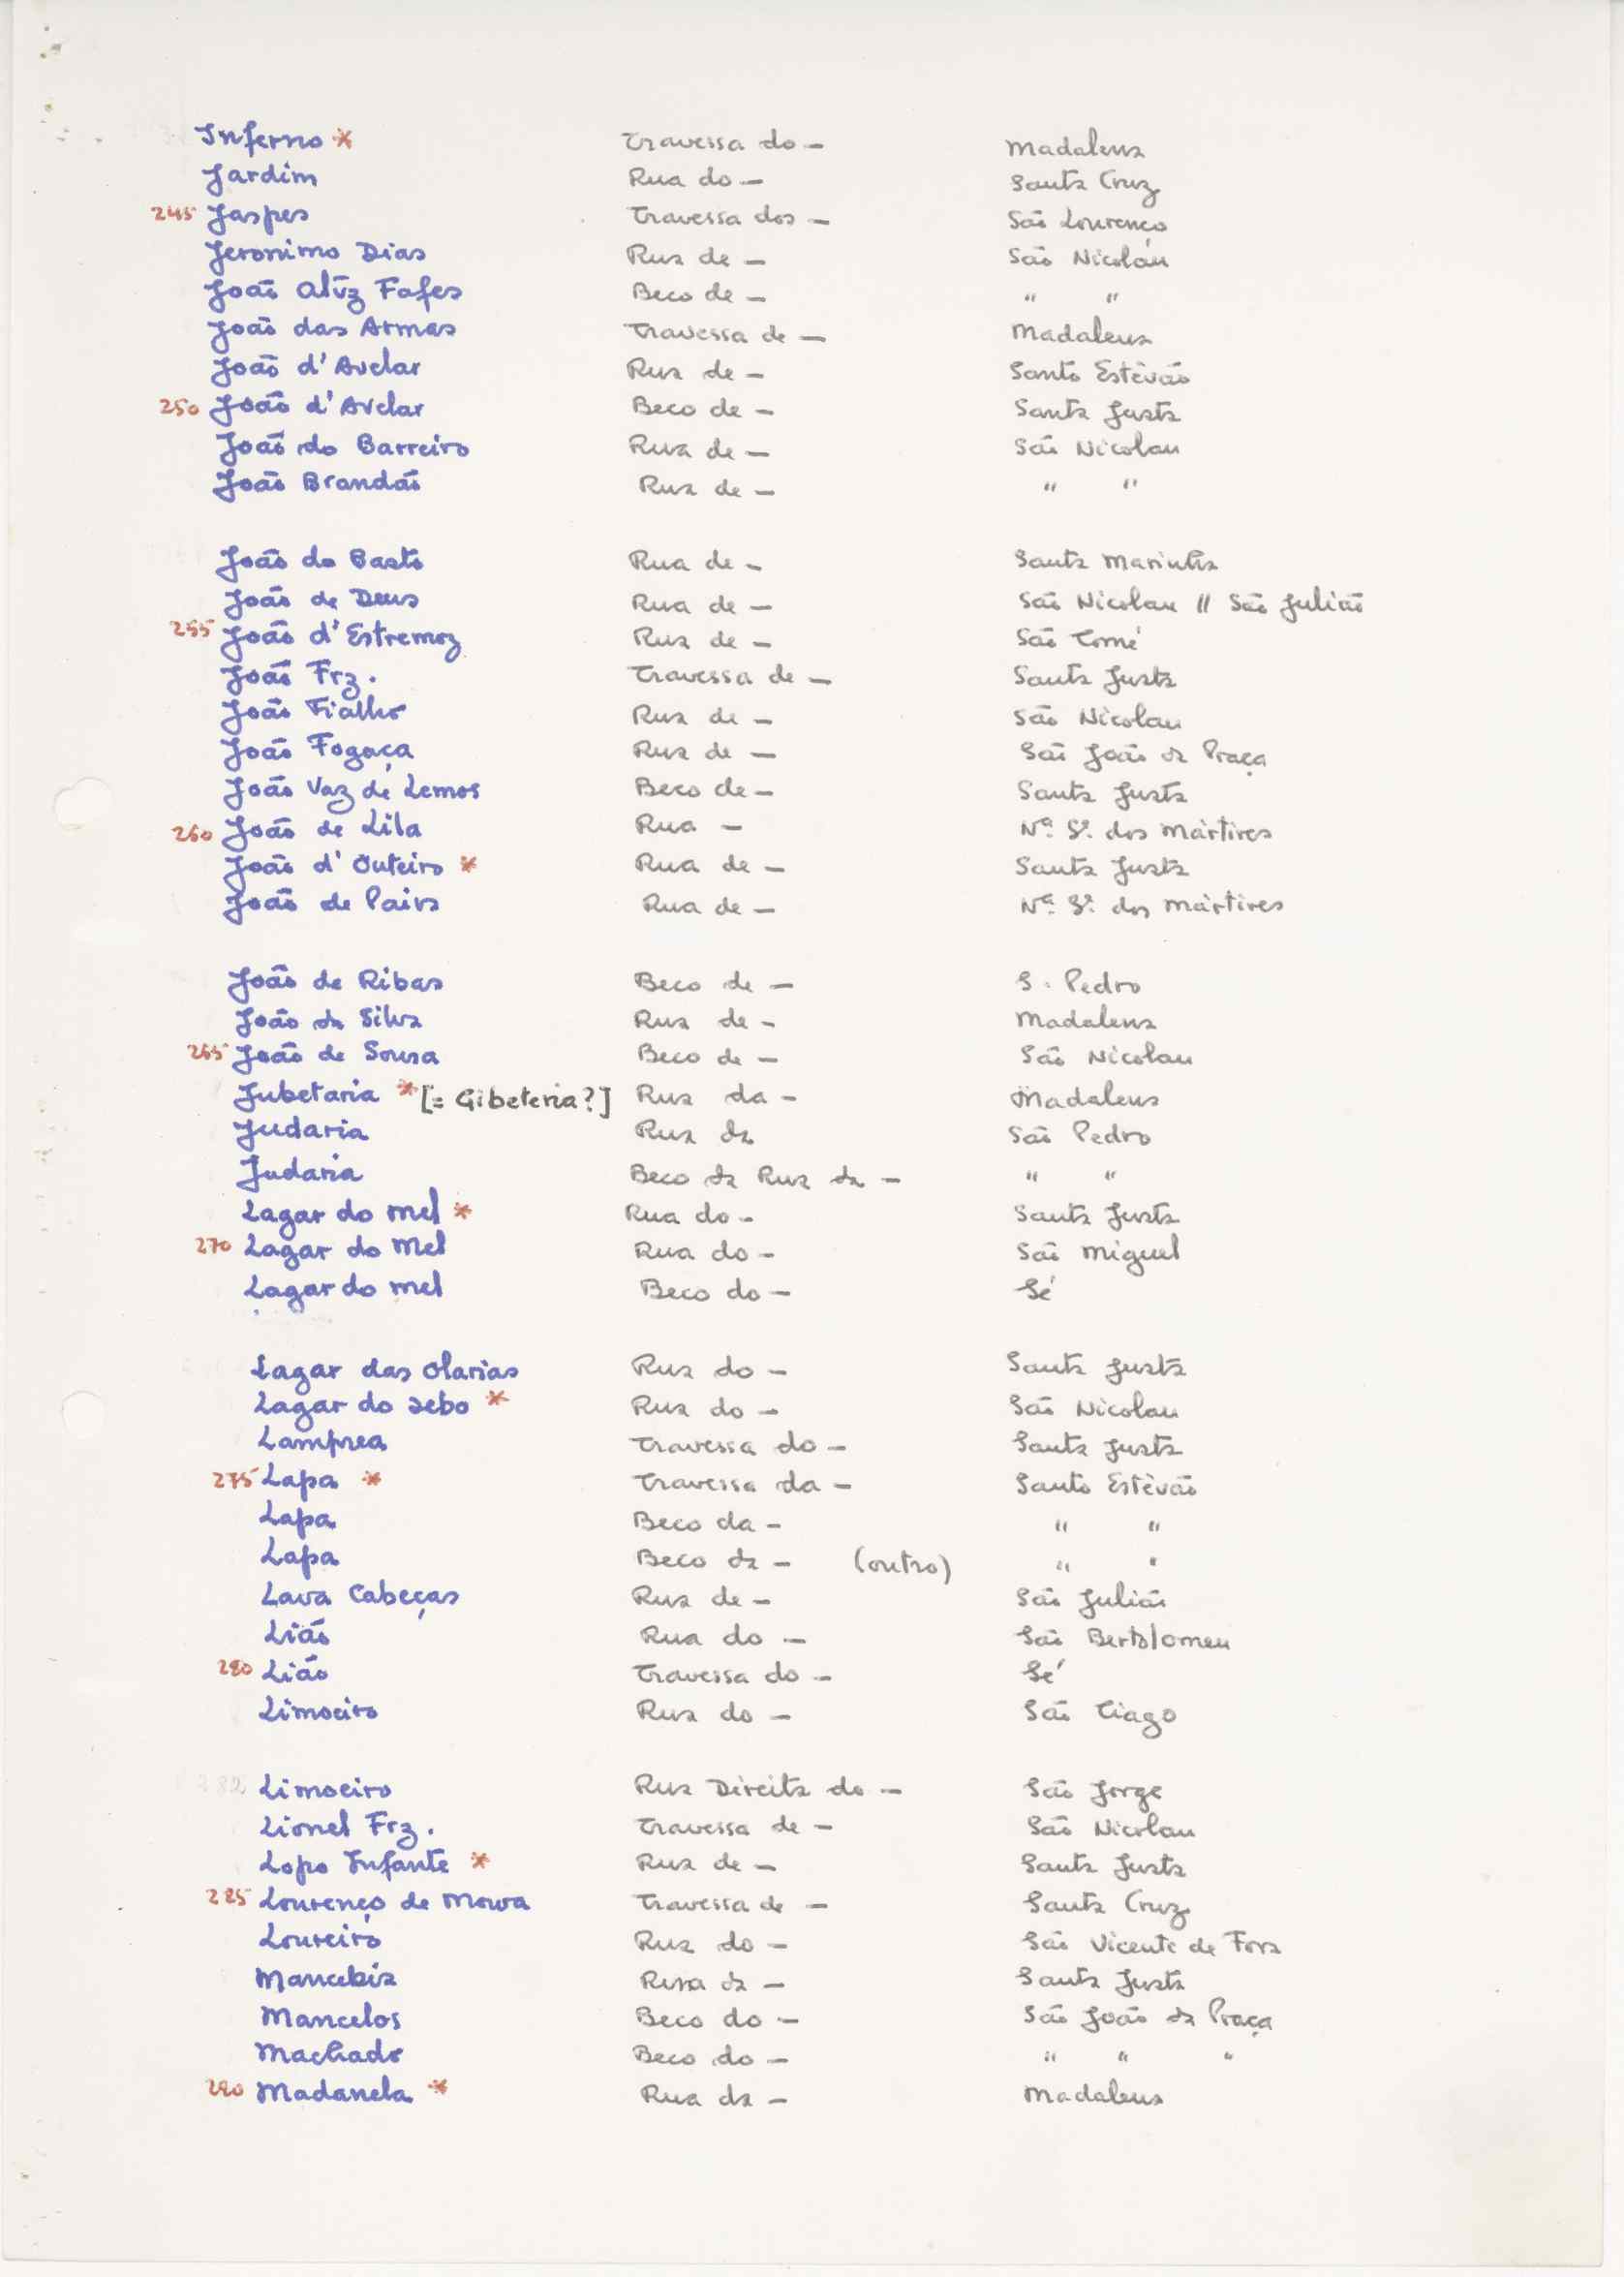 Inferno * Travessa do – Madalena
Jardim Rua do – Santa Cruz
245 Jaspes Travessa dos – São Lourenço
Jeronimo Dias Rua de – São Nicolau
João Alṽz Fafes Beco de – " "
João das Armas Travessa de – Madalena
João d'Avelar Rua de – Santo Estêvão
250 João d'Avelar Beco de – Santa Justa
João do Barreiro Rua de – São Nicolau
João Brandão Rua de – " "
João do Basto Rua de – Santa Marinha
João de Deus Rua de – São Nicolau // São Julião
255 João d'Estremoz Rua de – São Tomé
João Frz. Travessa de – Santa Justa
João Fialho Rua de – São Nicolau
João Fogaça Rua de – São João da Praça
João Vaz de Lemos Beco de – Santa Justa
260 João de Lila Rua – Nª. Sª. dos Mártires
João d'Outeiro * Rua de – Santa Justa
João de Paiva Rua de – Nª. Sª. dos Mártires
João de Ribas Beco de – S. Pedro
João da Silva Rua de – Madalena
265 João de Sousa Beco de – São Nicolau
Jubetaria * [= Gibeteria?] Rua da – Madalena
Judaria Rua da São Pedro
Judaria Beco da Rua da – " "
Lagar do mel * Rua do – Santa Justa
270 Lagar do Mel Rua do – São Miguel
Lagar do mel Beco do – Sé
Lagar das Olarias Rua do – Santa Justa
Lagar do sebo * Rua do – São Nicolau
Lamprea Travessa do – Santa Justa
275 Lapa * Travessa da – Santo Estêvão
Lapa Beco da – " "
Lapa Beco da – (outro) " "
Lava Cabeças Rua de – São Julião
Lião Rua do – São Bertolomeu
280 Lião Travessa do – Sé
Limoeiro Rua do – São Tiago
282 Limoeiro Rua Direita do – São Jorge
Lionel Frz. Travessa de – São Nicolau
Lopo Infante * Rua de – Santa Justa
285 Lourenço de Moura Travessa de – Santa Cruz
Loureiro Rua do – São Vicente de Fora
Mancebia Rua da – Santa Justa
Mancelos Beco do – São João da Praça
Machado Beco do – " " "
290 Madanela * Rua da – Madalena